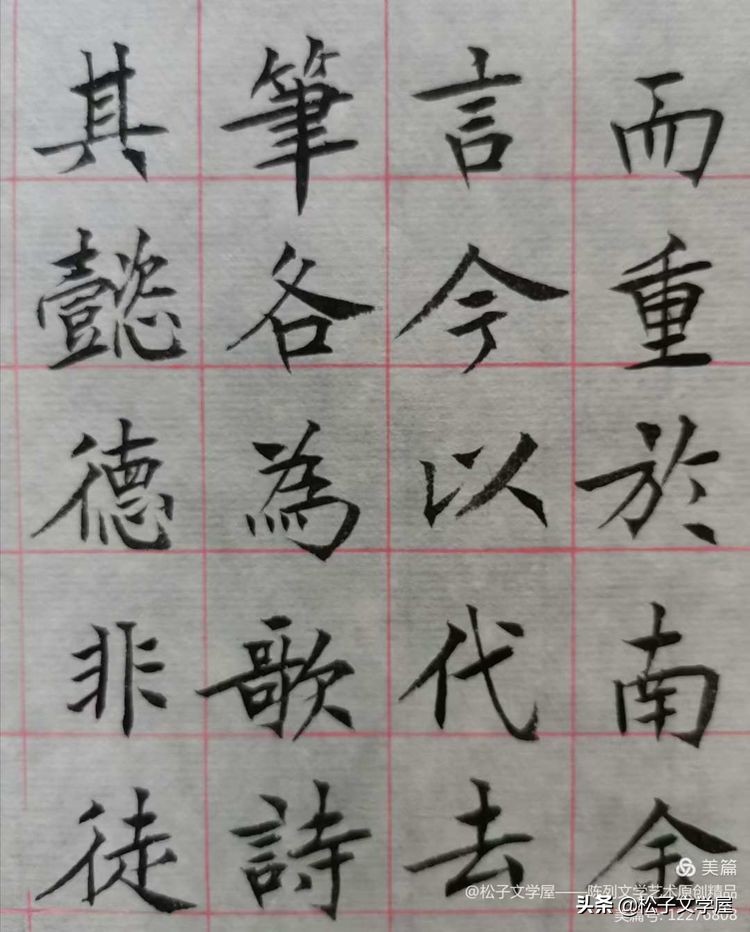 而重於南金
言今以代去
筆各為歌詩
其懿德非徒
美篇
@松子文学屋——陈列文学艺术原创精品
头条 @松子文学屋
美篇号: 12276808